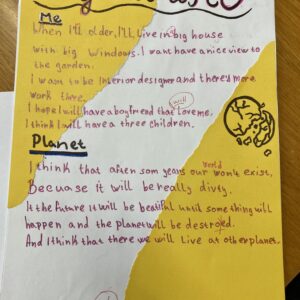 Me
When I'll older, I'll live in big house
with big windows. I want have a nice view to
the garden.
I want to be Interior designer and there's more
work there.
will
I hope I will have a boyfriend that love me.
I think I will have a three children.
Planet
World
I think that after som years our won't exist,
Becuase it will be really dirty.
It the future it will be beatiful until something will
happen and the planet will be destroyed.
And I think that there we will live at other planet.